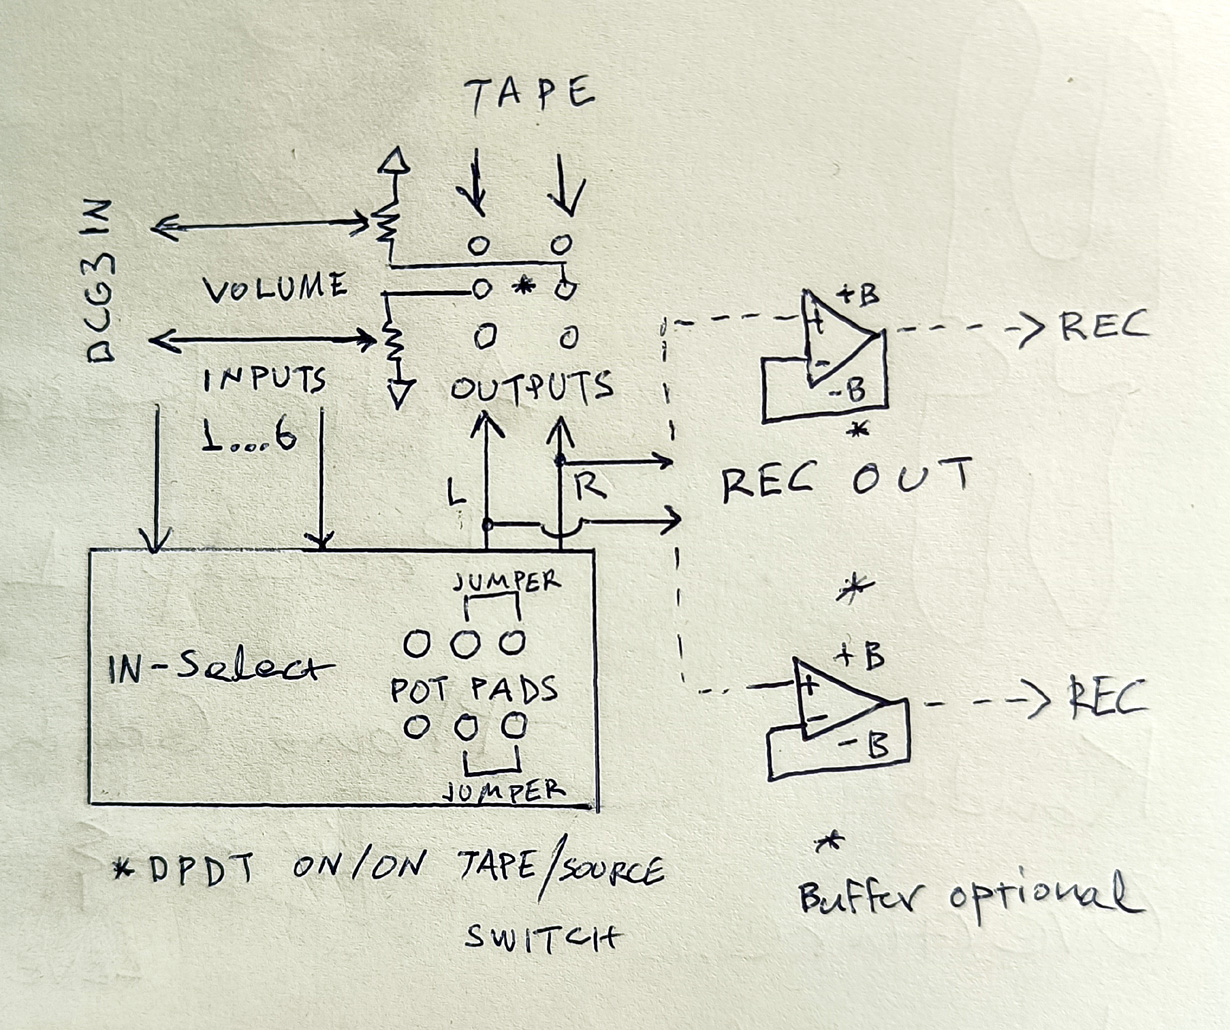 TAPE
DCG3 IN
VOLUME
*
+B
+
-
-B
REC
INPUTS
1...6
OUTPUTS
*
L
R
REC OUT
JUMPER
*
IN-Select
POT PADS
+B
+
-
-B
REC
JUMPER
*DPDT ON/ON TAPE/SOURCE
SWITCH
*
Buffer optional